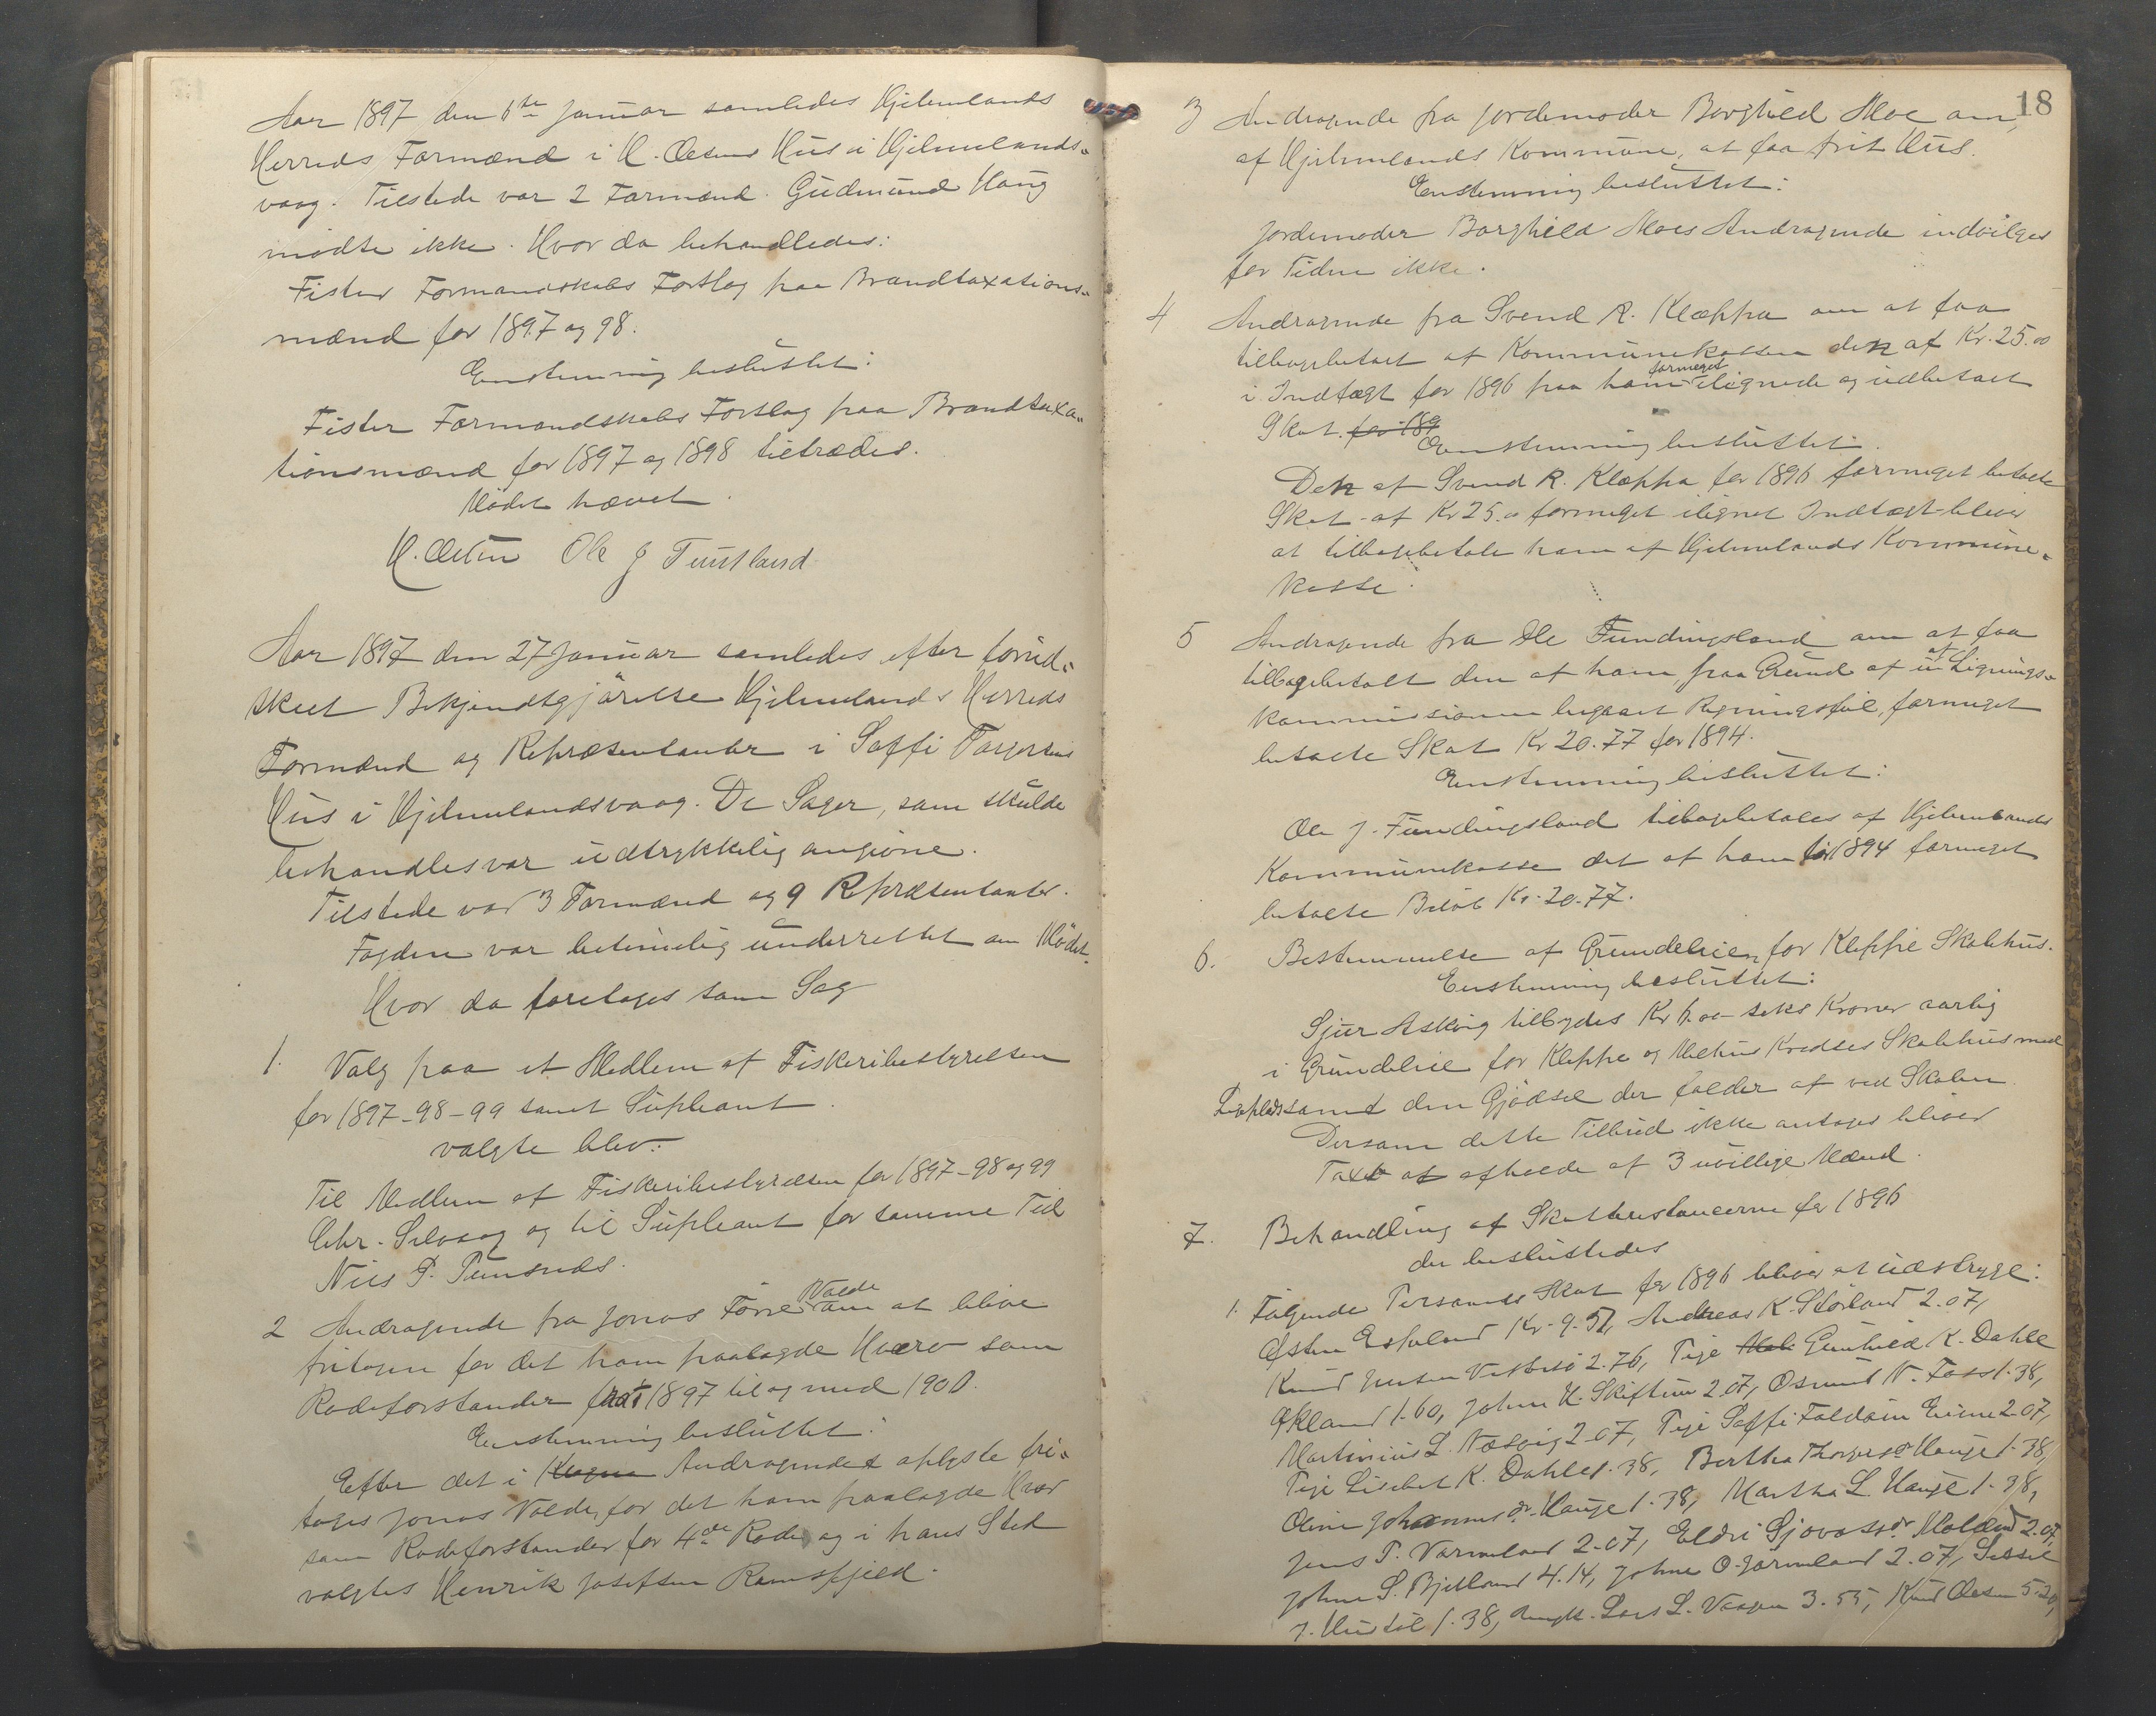 Aar 1897 den 6te Januar samledes Hjelmelands
Herreds Formænd i H. Oestens Hus i Hjelmelands-
vaag. Tilstede var 2 Formænd. Gudmund Haug
mødte ikke. Hvor da behandledes:
Fister Formandskabs Forslag paa Brandtaxations-
mænd for 1897 og 98.
Enstemmig besluttet:
Fister Formandskabs Forslag paa Brandtaxa-
tionsmænd for 1897 og 1898 tiltrædes.
Mødet hævet.
Ole J Tuntland
Aar 1897 den 27 Januar samledes efter forud-
skeet Bekjendtgjørelse Hjelmelands Herreds
Formænd og Repræsentanter i Saffi Torgersens
Hus i Hjelmelandsvaag. De Sager, som skulde
behandles var udtrykkelig angivne.
Tilstede var 3 Formænd og 9 Repræsentanter.
Fogden var betimelig underrettet om Mødet.
Hvor da foretoges som Sag
1. Valg paa et Medlem af Fiskeribestyrelsen
for 1897-98-99 samt Supleant.
valgte blev:
Til Medlem af Fiskeribestyrelsen for 1897-98 og 99
Chr. Selvaag og til Supleant for samme Tid
Nils P.
2 Andragende fra Jonas Førre Valde om at blive
fritagen for det ham paalagde Hverv som
Rodeforstander fra 1897 til og med 1900.
Enstemmig besluttet:
Efter det i Andragendet oplyste fri-
tages Jonas Valde, for det ham paalagde Hverv
som Rodeforstander for 4de Rode og i hans Sted
valgtes Henrik Josefsen Ramsfjeld.
18
3 Andragende fra Jordemoder Borghild Moe om,
af Hjelmelands Kommune, at faa frit Hus.
Enstemmig besluttet:
Jordemoder Borghild Moes Andragende indvilges
for Tiden ikke.
4 Andragende fra Svend R. Kleppa om at faa
tilbagebetalt af Kommunekassen den af Kr. 25.00
i Indtægt for 1896 paa ham formeget ilignede og udbetalt
Skat. for 189
Enstemmig besluttet:
Den af Svend R. Kleppa for 1896 formeget betalte
Skat af Kr 25.00 formeget ilignet Indtægt bliver
at tilbagebetale ham af Hjelmelands Kommune-
kasse.
5 Andragende fra Ole Fundingsland om at faa
tilbagebetalt den af ham paa Grund af en af Lignings-
kommissionen begaaet Regningsfeil, formeget
betalte Skat Kr 20.77 for 1894.
Enstemmig besluttet:
Ole J. Fundingsland tilbagebetales af Hjelmelands
Kommunekasse det af ham for 1894 formeget
betalte Beløb Kr. 20.77.
6. Bestemmelse af Grundeleien for Kleppe Skolehus.
Enstemmig besluttet:
Sjur Asking tilbydes Kr 6.00 seks Kroner aarlig
i Grundeleie for Kleppe og Mæhus Kredses Skolehus med
Legeplads samt den Gjødsel der falder af ved Skolen.
Dersom dette Tilbud ikke antages bliver
Taxt at afholde af 3 uvillige Mænd.
7. Behandling af Skatterestancerne for 1896
der besluttedes
1. Følgende Personers Skat for 1896 bliver at udstryge:
Østen Kr. 9.51, Andreas K. Storland 2.07,
Knud Jensen Vestbø 2.76, Pige Gunhild K. Dahle
Økland 1.60, John H. Skiftun 2.07, Osmund N. Foss 1.38,
Martinius L. Næsvig 2.07, Pige Saffi 2.07,
Pige Lisebet K. Dahle 1.38, Bertha Thorgersdr Hauge 1.38,
Oline Johannesdr. Hauge 1.38, Martha L. Hauge 1.38,
Jens T. Vormeland 2.07, Eldri Sjovasdr. 2.07,
John S. Bjelland 4.14, John O. 2.07, Sissel
J. 1.38, Ungk. Lars L. Vaagen 3.55, Knud Olesen 5.20,